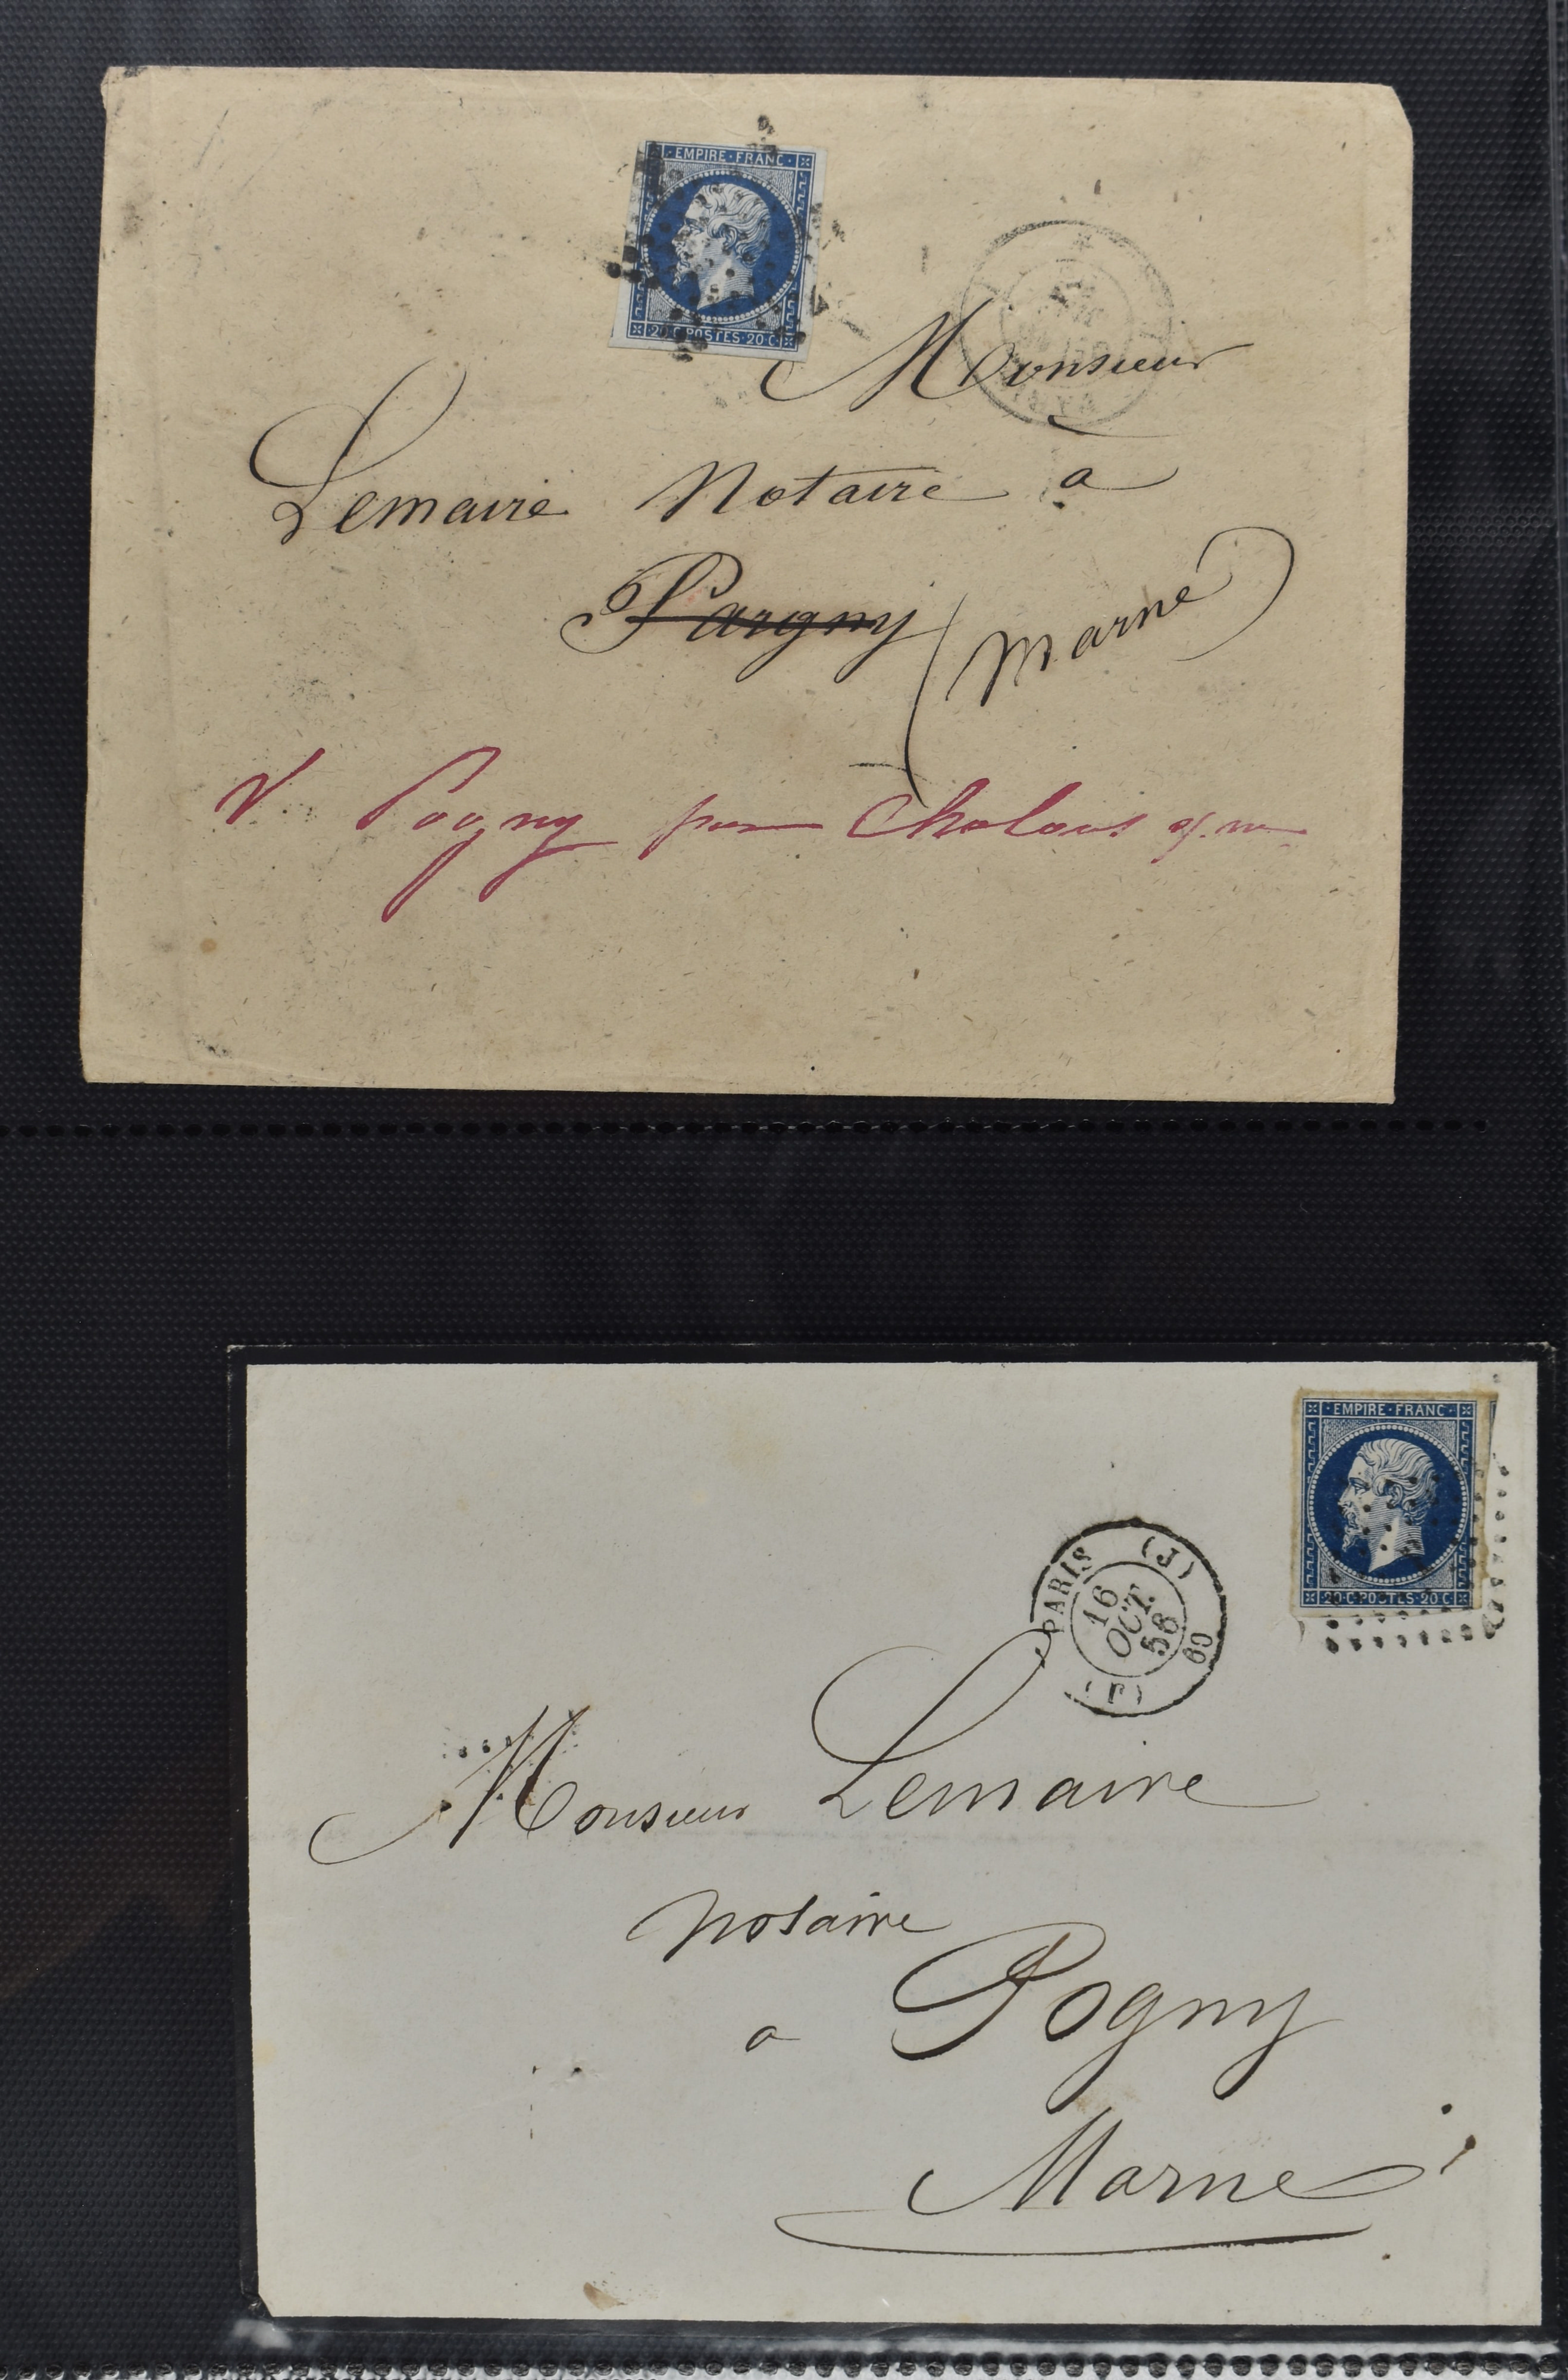 EMPIRE·FRANC·
20·C·POSTES·20·C·
Monsieur
Lemaire Notaire a
Pargny (Marne)
V. Pogny par Chalons s/. m
·EMPIRE·FRANC·
20·C·POSTES·20·C
PARIS (J) 60 (J)
16
OCT.
56
Monsieur Lemaire
notaire
a Pogny
Marne